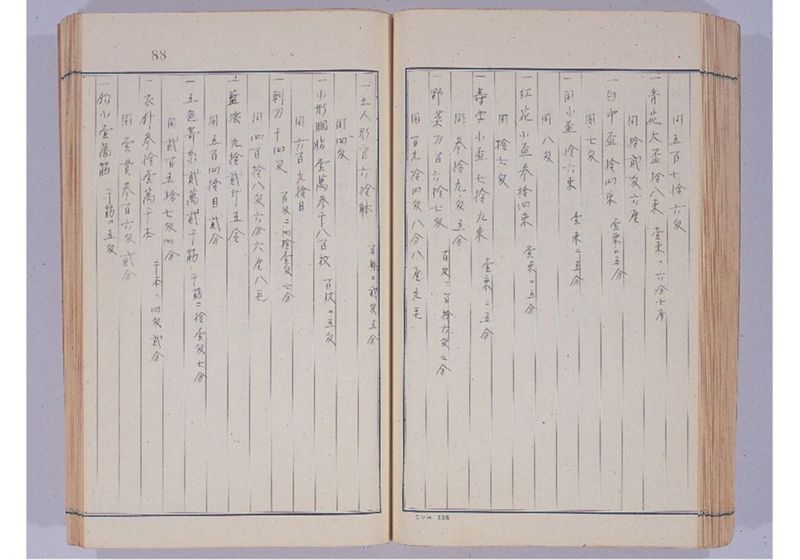 同五百七拾六匁
一青花大盃拾八束 壹束ニ六分七厘
同拾貳匁六厘
一白中盃拾四束 壹束ニ五分
同七匁
一同小盃拾六束 壹束ニ五分
同八匁
一紅花小盃参拾四束 壹束ニ五分
同拾七匁
一壽字小盃七拾九束 壹束ニ五分
同参拾九匁五分
一野菜刀百六拾七匁 百匁ニ百拾六匁七分
同百九拾四匁八分八厘九毛
一土人形百六拾躰 百躰ニ貳匁五分
同四匁
一小形胭脂壹萬参千八百枚 百枚ニ五匁
同六百九拾目
一剃刀千四匁 百匁ニ四拾壹匁六分
同四百拾八匁六分六厘八毛
一藍漆九拾貳斤五合
同五百四拾目貳分
一五色寄糸貳萬貳千筋 千筋ニ拾壹匁七分
同貳百五拾七匁四分
一衣針参拾壹萬千本 千本ニ四匁貳分
同壹貫参百六匁貳分
一釣小壹萬筋 千筋ニ五匁
88
コクヨ 355